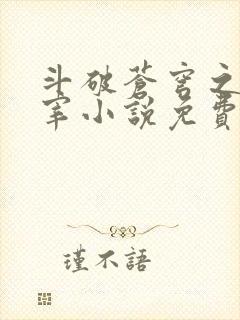 斗破蒼穹之
宰小說免費
瑾不語